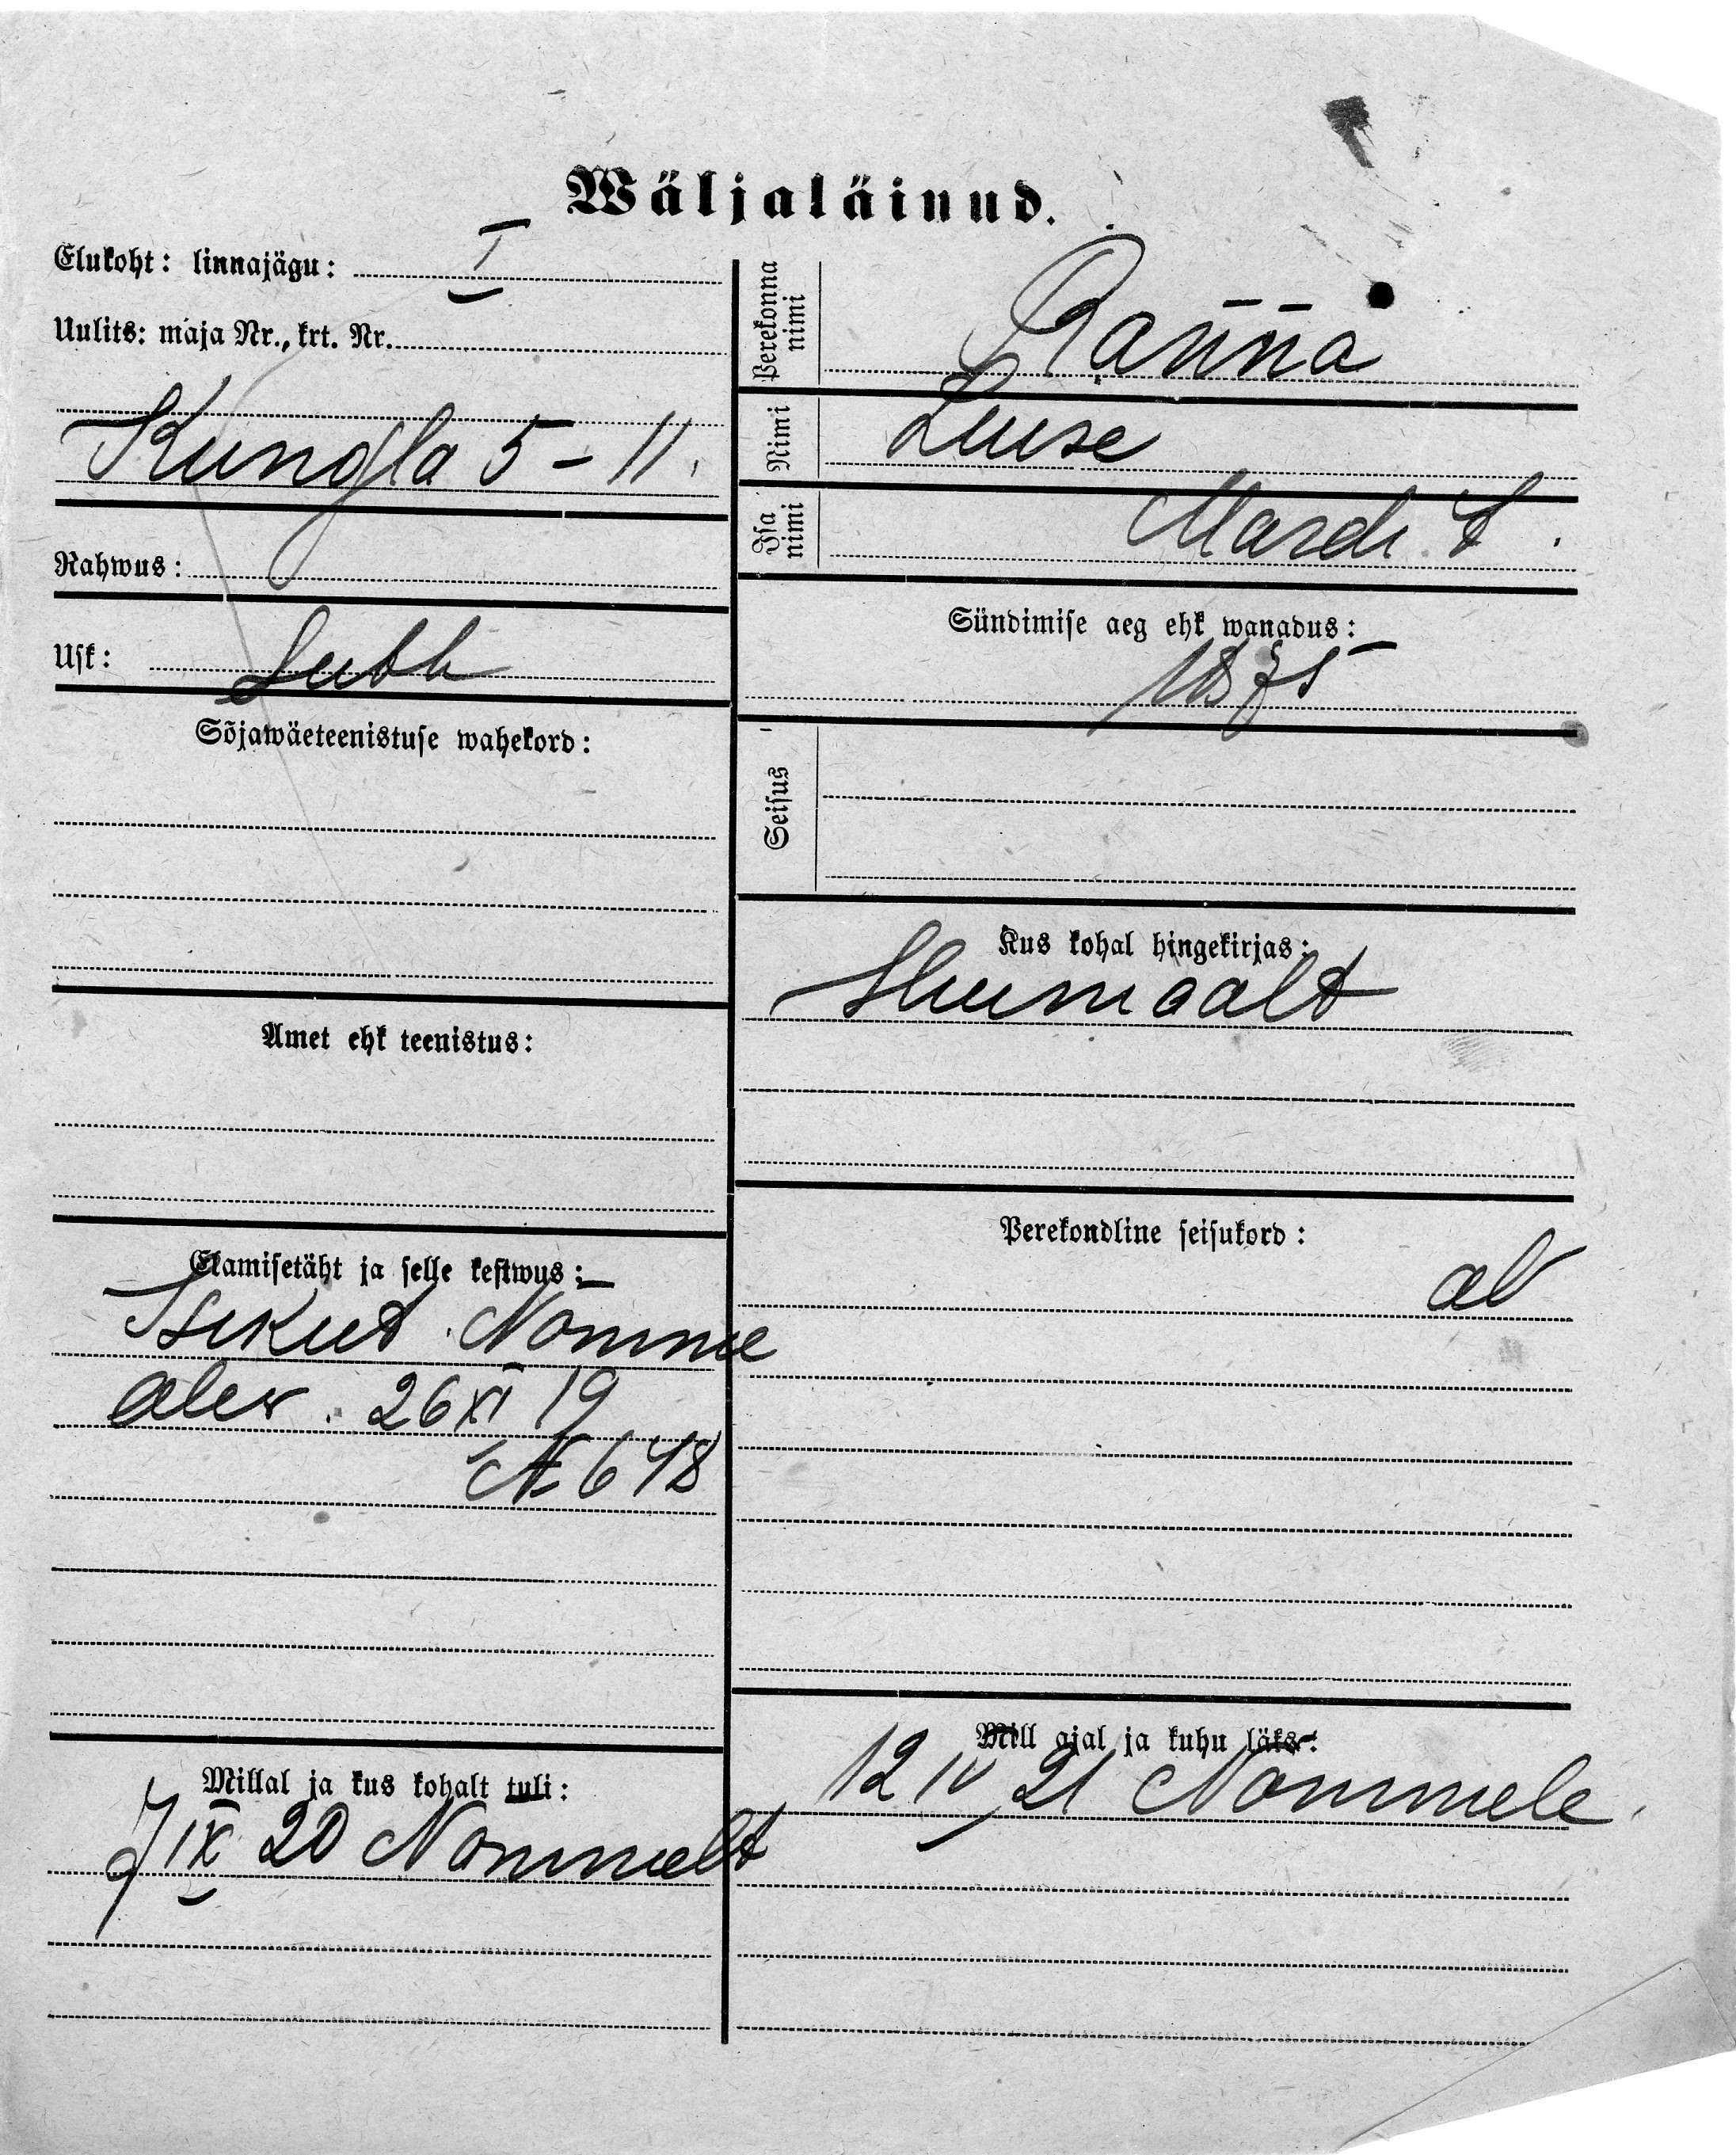 Wäljaläinud.
Elukoht: linnajägu: I
Uulits: maja Nr., krt. Nr.
Kungla 5 – 11.
Rahwus:
Usk: Luth
Sõjawäeteenistuse wahekord:
Amet ehk teenistus:
Elamisetäht ja selle kestwus:
Isikut. Nõmme
alew. 26 XI 19
№ 648
Millal ja kus kohalt tuli:
7 IX 20 Nõmmelt
Perekonna nimi Ranna
Nimi Luise
Isa nimi Mardi t.
Sündimise aeg ehk wanadus:
1875
Seisus
Kus kohal hingekirjas:
Hiiumaalt
Perekondline seisukord:
ab
Mill ajal ja kuhu läks:
12 IV 21 Nõmmele.